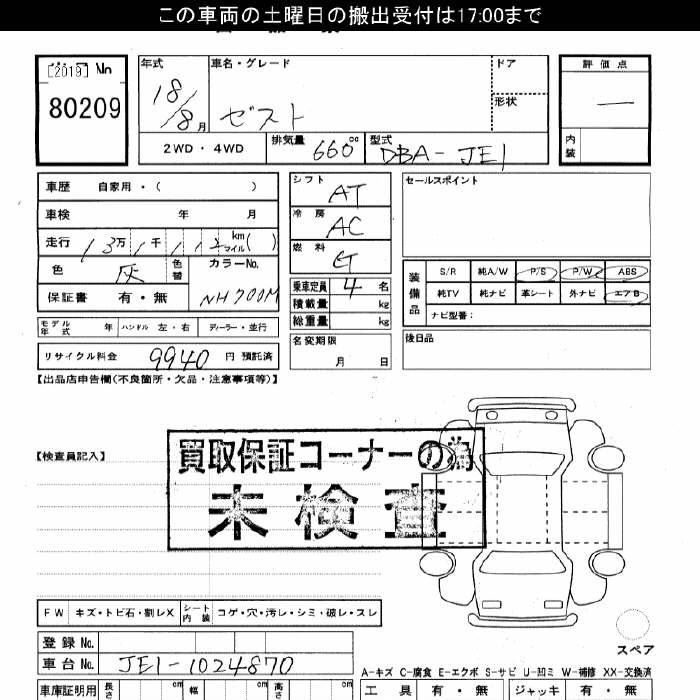 この車両の土曜日の搬出受付は17:00まで
[2019] No
80209
年式 車名・グレード ドア 評価点
18/8月 ゼスト 形状 —
2WD・4WD 排気量 660cc 型式 DBA-JE1 内装
車歴 自家用・( )
車検 年 月
走行 13万1千112km マイル( )
色 灰 色替 カラーNo.
保証書 有・無 NH700M
モデル年式 年 ハンドル 左・右 ディーラー・並行
リサイクル料金 9940 円 預託済
シフト AT
冷房 AC
燃料
乗車定員 4 名
積載量 kg
総重量 kg
名変期限
月 日
セールスポイント
装備品 S/R 純A/W P/S P/W ABS
純TV 純ナビ 革シート 外ナビ エアB
ナビ型番:
後日品
【出品店申告欄(不良箇所・欠品・注意事項等)】
【検査員記入】
買取保証コーナーの為
未検査
FW キズ・トビ石・割レX シート内装 コゲ・穴・汚レ・シミ・破レ・スレ
登録No.
車台No. JE1-1024870
スペア
A-キズ C-腐食 E-エクボ S-サビ U-凹ミ W-補修 XX-交換済
車庫証明用 長さ cm 幅 cm 高さ cm 工具 有・無 ジャッキ 有・無